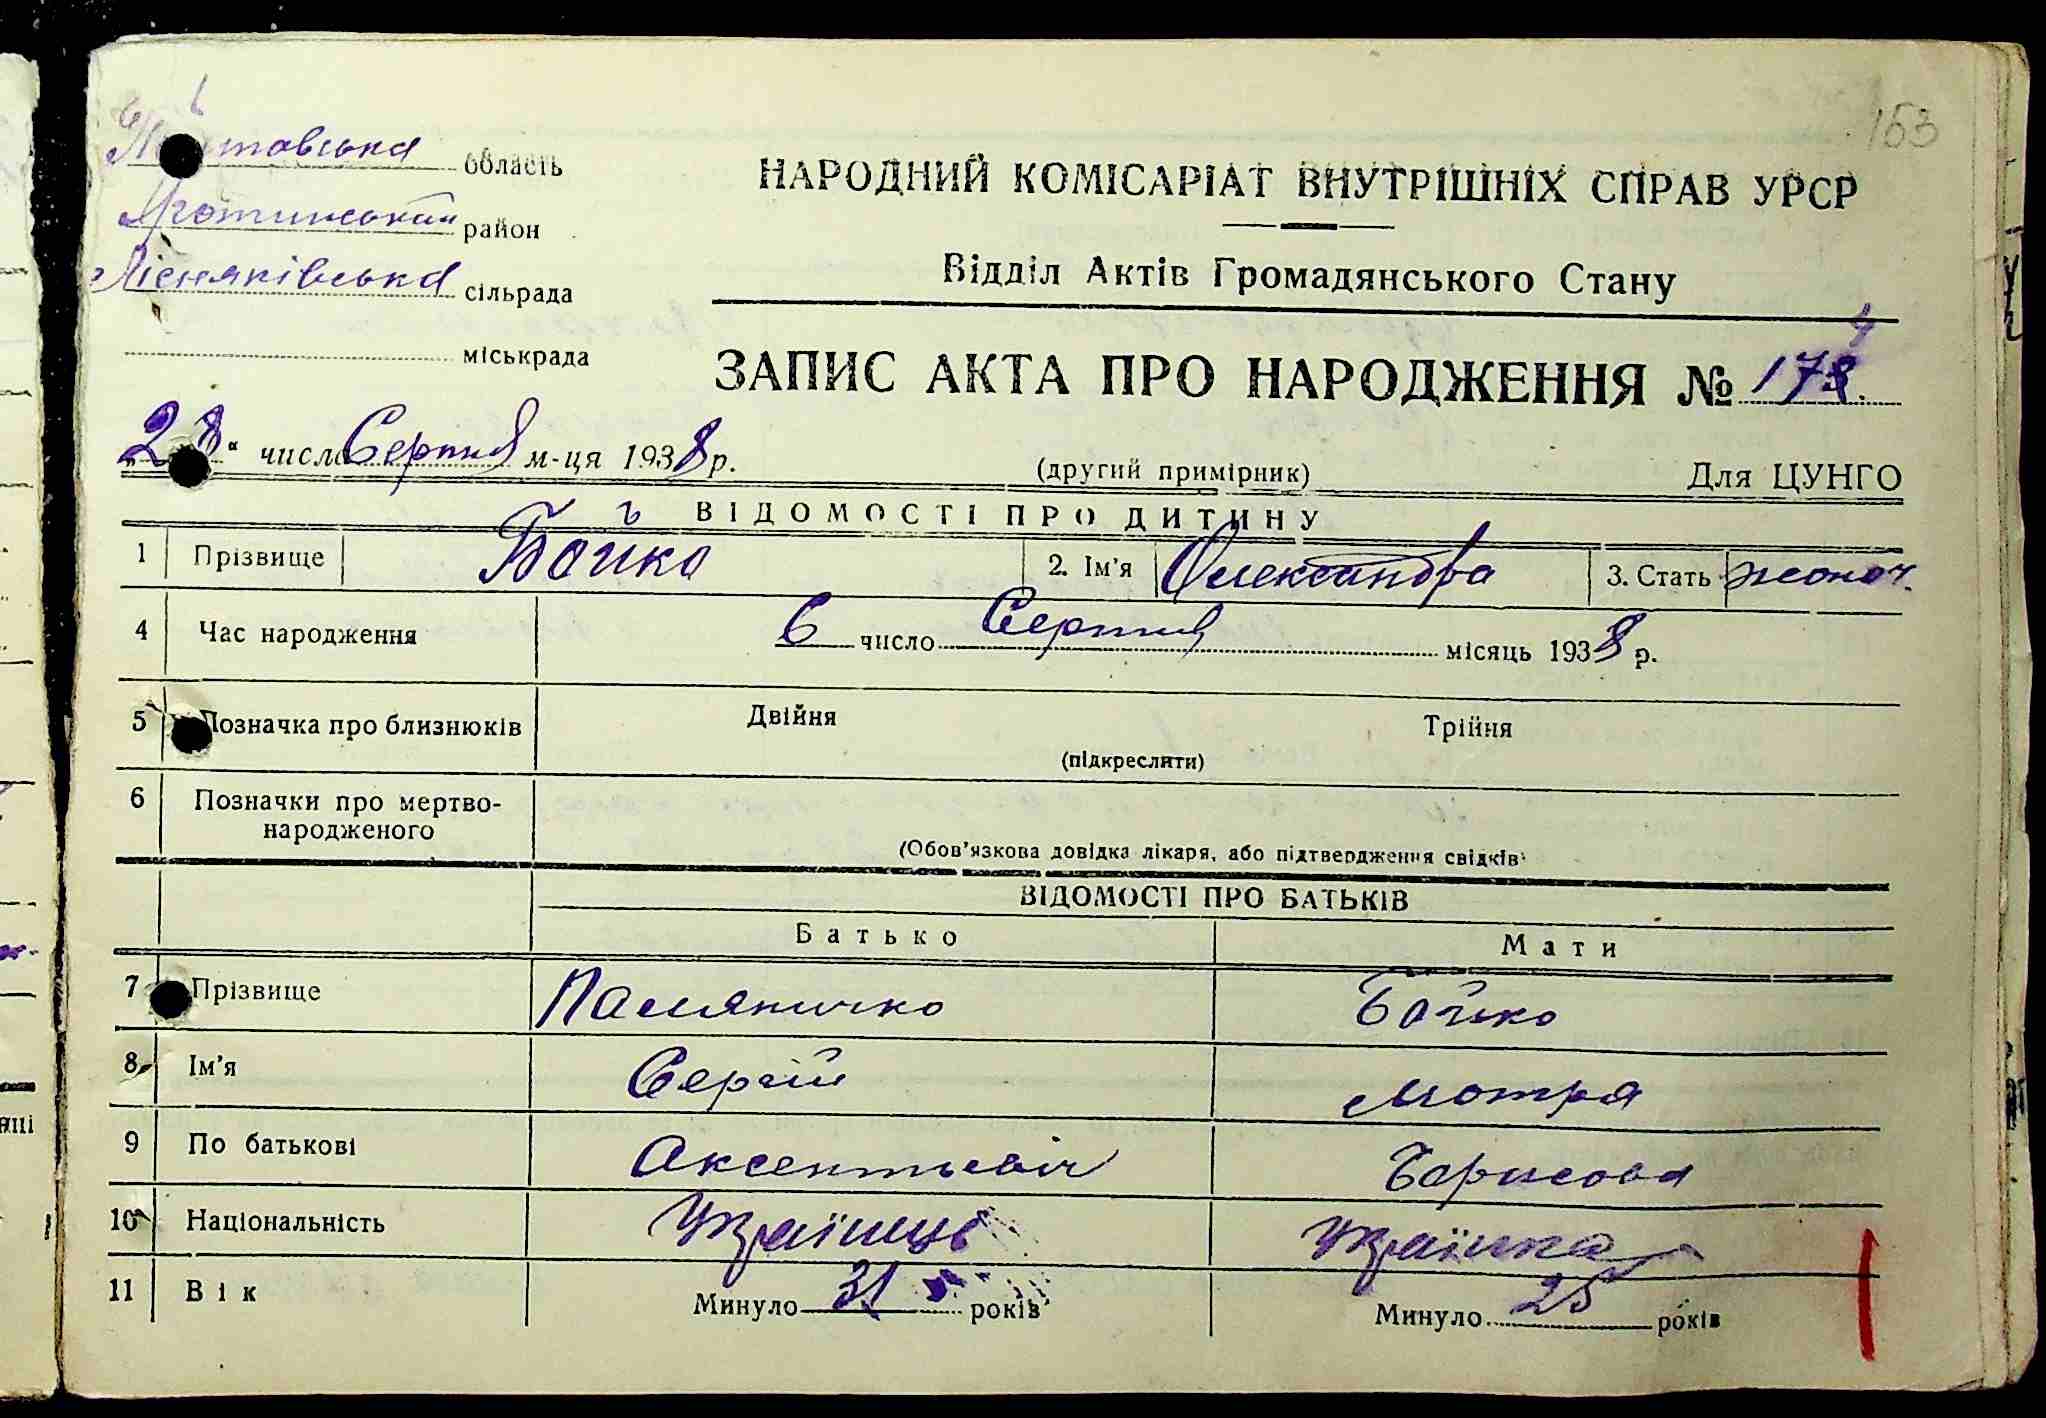 153
Полтавська область
Яготинський район
Лісняківська сільрада
міськрада
НАРОДНИЙ КОМІСАРІАТ ВНУТРІШНІХ СПРАВ УРСР
Відділ Актів Громадянського Стану
ЗАПИС АКТА ПРО НАРОДЖЕННЯ №
„28“ число Серпня м-ця 1938 р.
(другий примірник)
Для ЦУНГО
ВІДОМОСТІ ПРО ДИТИНУ
1 Прізвище Бойко 2. Ім'я Олександра 3. Стать жоноч.
4 Час народження 6 число Серпня місяць 1938 р.
5 Позначка про близнюків Двійня Трійня
(підкреслити)
6 Позначки про мертво-
народженого
(Обов'язкова довідка лікаря, або підтвердження свідків)
ВІДОМОСТІ ПРО БАТЬКІВ
Батько Мати
7 Прізвище Паляничко Бойко
8 Ім'я Сергій Мотря
9 По батькові Аксентьевіч Борисова
10 Національність Українець Українка
11 Вік Минуло 31 років Минуло 25 років